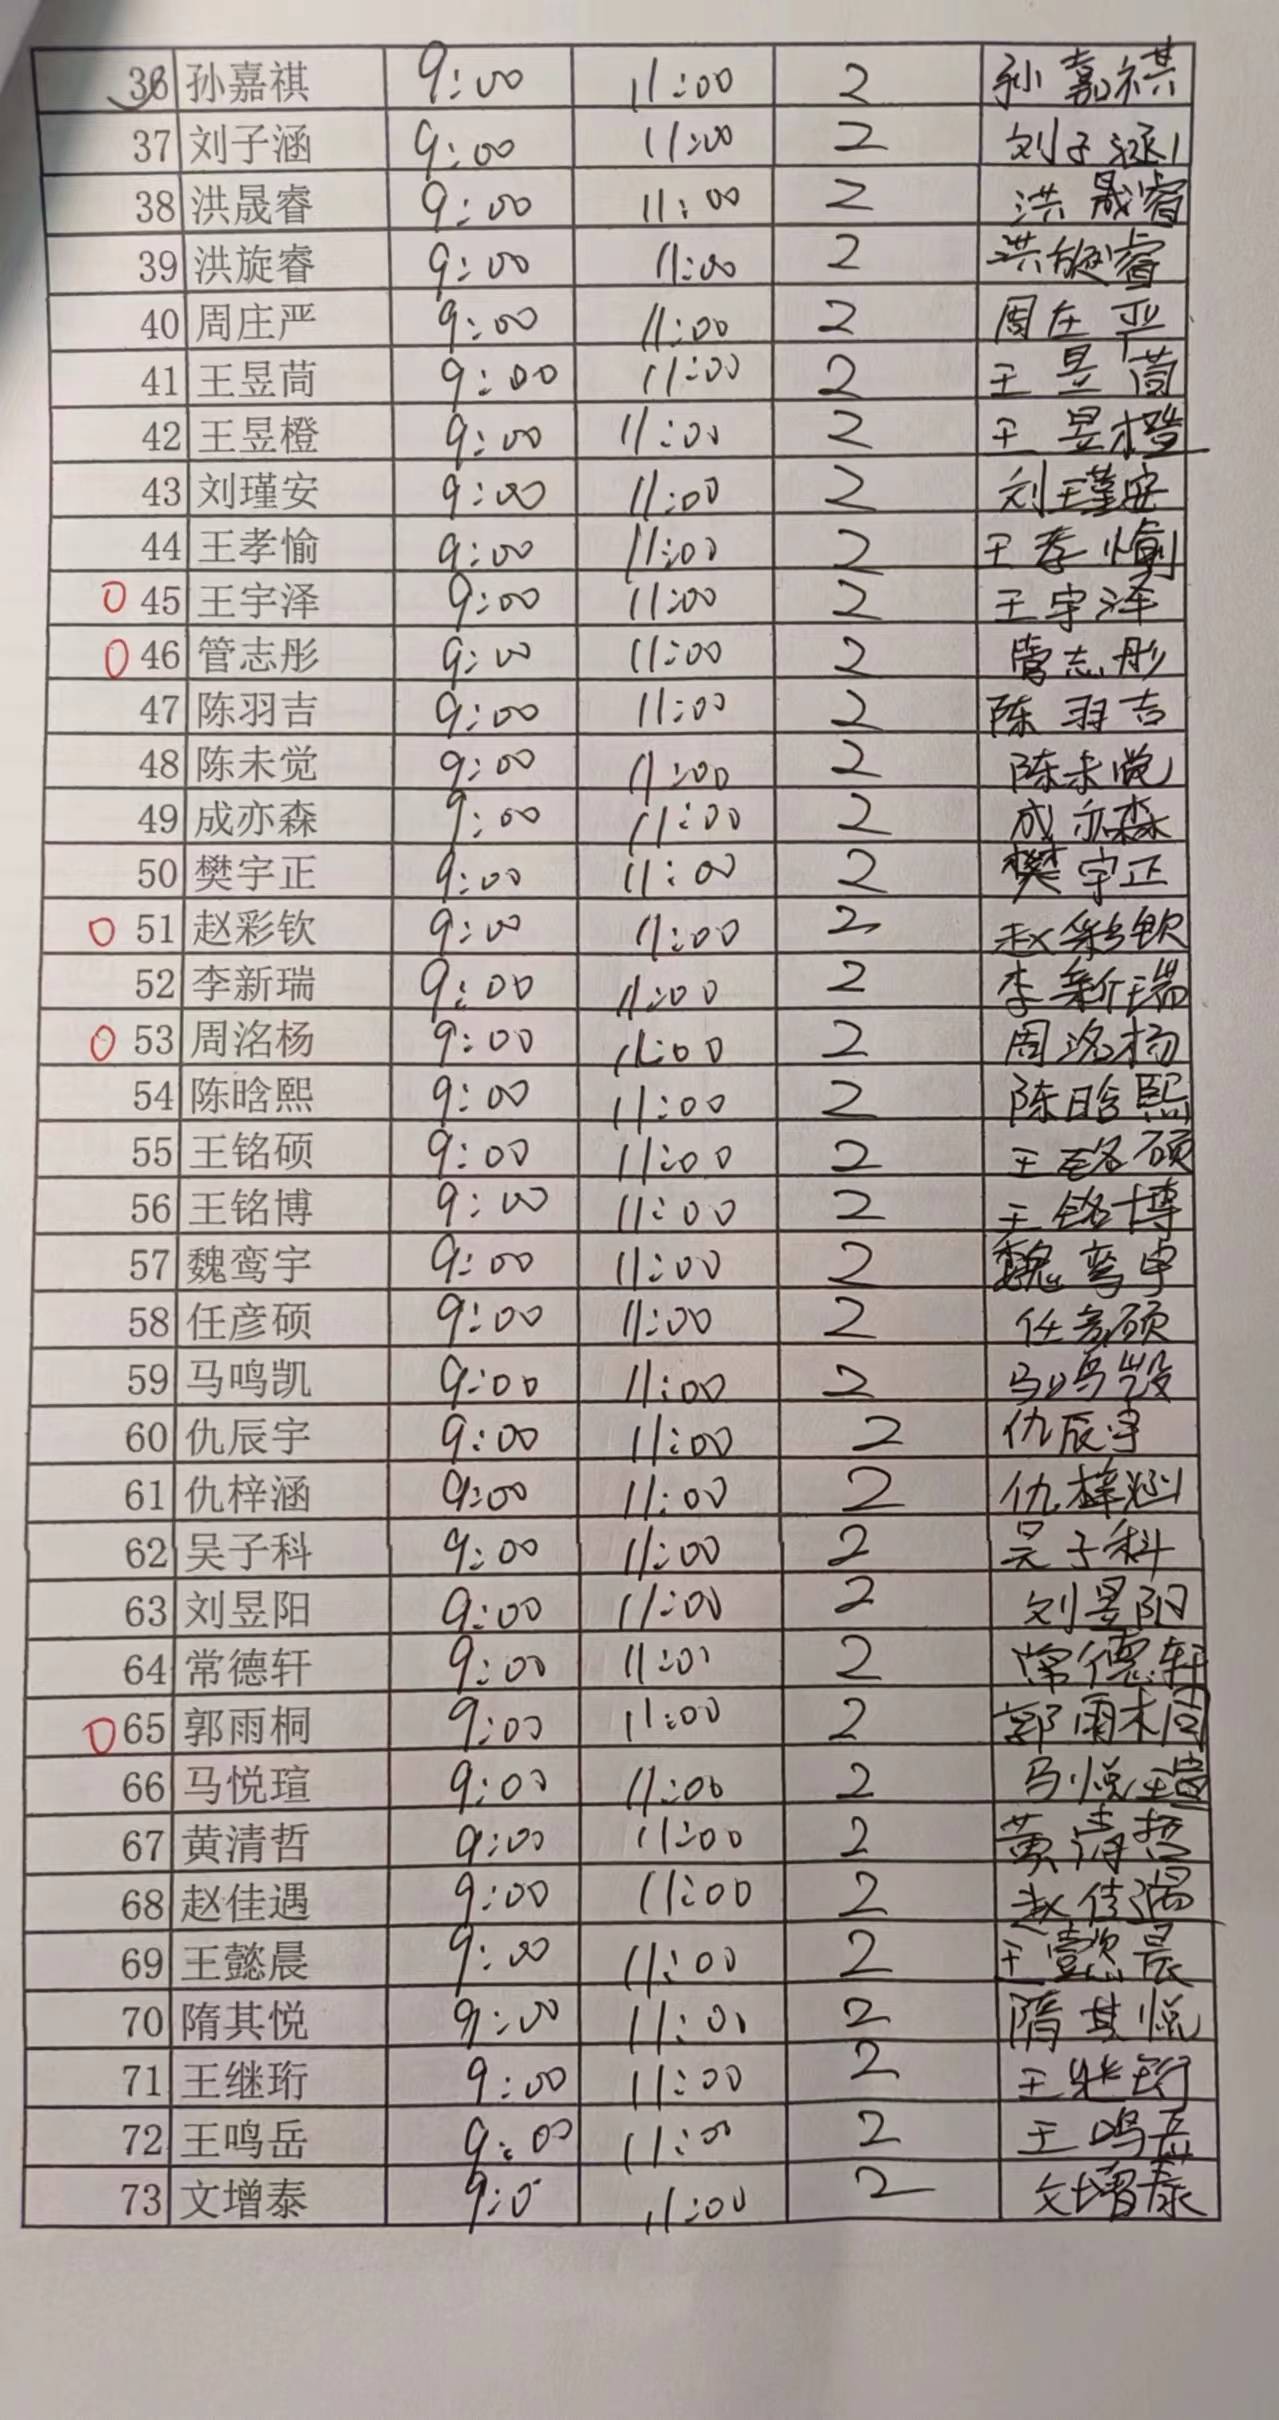 36 孙嘉祺 9:00 11:00 2 孙嘉祺
37 刘子涵 9:00 11:00 2 刘子涵
38 洪晟睿 9:00 11:00 2 洪晟睿
39 洪旋睿 9:00 11:00 2 洪旋睿
40 周庄严 9:00 11:00 2 周庄严
41 王昱茼 9:00 11:00 2 王昱茼
42 王昱橙 9:00 11:00 2 王昱橙
43 刘瑾安 9:00 11:00 2 刘瑾安
44 王孝愉 9:00 11:00 2 王孝愉
45 王宇泽 9:00 11:00 2 王宇泽
46 管志彤 9:00 11:00 2 管志彤
47 陈羽吉 9:00 11:00 2 陈羽吉
48 陈未觉 9:00 11:00 2 陈未觉
49 成亦森 9:00 11:00 2 成亦森
50 樊宇正 9:00 11:00 2 樊宇正
51 赵彩钦 9:00 11:00 2 赵彩钦
52 李新瑞 9:00 11:00 2 李新瑞
53 周洺杨 9:00 11:00 2 周洺杨
54 陈晗熙 9:00 11:00 2 陈晗熙
55 王铭硕 9:00 11:00 2 王铭硕
56 王铭博 9:00 11:00 2 王铭博
57 魏鸾宇 9:00 11:00 2 魏鸾宇
58 任彦硕 9:00 11:00 2 任彦硕
59 马鸣凯 9:00 11:00 2 马鸣凯
60 仇辰宇 9:00 11:00 2 仇辰宇
61 仇梓涵 9:00 11:00 2 仇梓涵
62 吴子科 9:00 11:00 2 吴子科
63 刘昱阳 9:00 11:00 2 刘昱阳
64 常德轩 9:00 11:00 2 常德轩
65 郭雨桐 9:00 11:00 2 郭雨桐
66 马悦瑄 9:00 11:00 2 马悦瑄
67 黄清哲 9:00 11:00 2 黄清哲
68 赵佳遇 9:00 11:00 2 赵佳遇
69 王懿晨 9:00 11:00 2 王懿晨
70 隋其悦 9:00 11:00 2 隋其悦
71 王继珩 9:00 11:00 2 王继珩
72 王鸣岳 9:00 11:00 2 王鸣岳
73 文增泰 9:0 11:00 2 文增泰